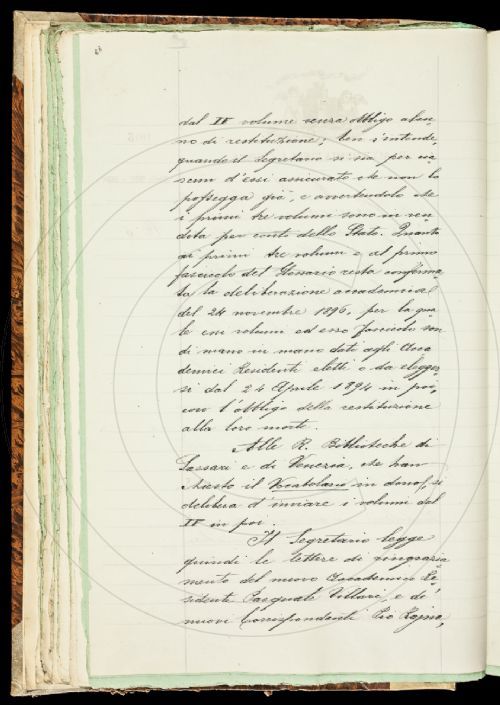 dal IV volume senza obbligo alcu-
no di restituzione; ben s'intende,
quando il Segretario si sia per cia-
scun d'essi assicurato che non lo
possegga già, e avvertendolo che
i primi tre volumi sono in ven
dita per conto dello Stato. Quanto
ai primi tre volumi e al primo
fascicolo del Glossario resta conferma-
ta la deliberazione accademica
del 24 novembre 1896, per la qua-
le essi volumi ed esso fascicolo son
di mano in mano dati agli Acca
demici Residenti eletti o da elegger-
si dal 24 Aprile 1894 in poi,
con l'obbligo della restituzione
alla loro morte.
Alle R. Biblioteche di
Sassari e di Venezia, che han
chiesto il Vocabolario in dono, si
delibera d'inviare i volumi dal
IV in poi.
Il Segretario legge
quindi le lettere di ringrazia-
mento del nuovo Accademico Re-
sidente Pasquale Villari, e de'
nuovi Corrispondenti Pio Rajna,